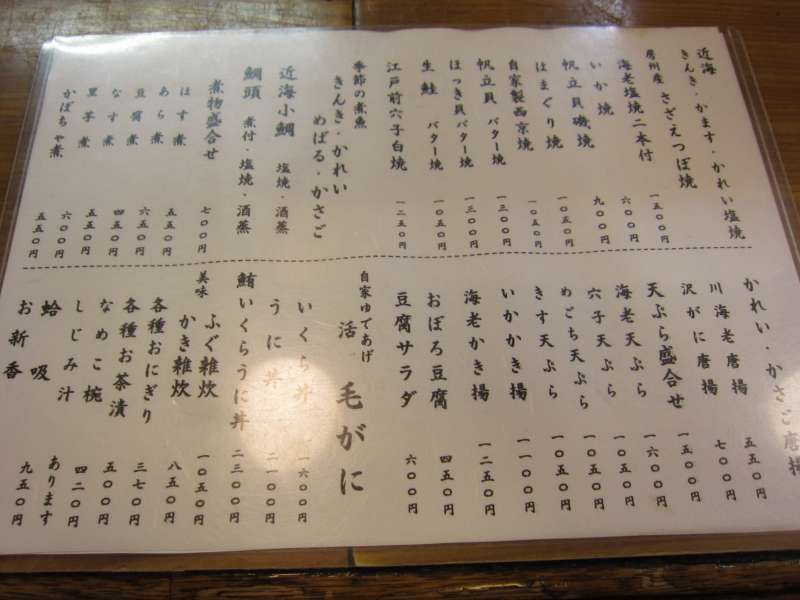 近海 きんき・かます・かれい塩焼
房州産 さざえつぼ焼 一五〇〇円
海老塩焼二本付 六〇〇円
いか焼 九〇〇円
帆立貝磯焼 一〇五〇円
はまぐり焼 一〇五〇円
自家製西京焼
帆立貝 バター焼 一三〇〇円
ほっき貝バター焼 一三〇〇円
生鮭 バター焼 一〇五〇円
江戸前穴子白焼 一二五〇円
季節の煮魚
きんき・かれい
めばる・かさご
近海小鯛 塩焼・酒蒸
鯛頭 煮付・塩焼・酒蒸
煮物盛合せ 七〇〇円
はす煮 五五〇円
あら煮 六五〇円
豆腐煮 四五〇円
なす煮 五五〇円
里芋煮 六〇〇円
かぼちゃ煮 五五〇円
かれい・かさご唐揚
川海老唐揚 五五〇円
沢がに唐揚 七〇〇円
天ぷら盛合せ 一五〇〇円
海老天ぷら 一六〇〇円
穴子天ぷら 一〇五〇円
めごち天ぷら 一〇五〇円
きす天ぷら 一〇五〇円
いかかき揚 一一〇〇円
海老かき揚 一二五〇円
おぼろ豆腐 四五〇円
豆腐サラダ 六〇〇円
自家ゆであげ
活 毛がに
いくら丼 一六〇〇円
うに丼 二一〇〇円
鮪いくらうに丼 二三〇〇円
美味 ふぐ雑炊 一〇五〇円
かき雑炊 八五〇円
各種おにぎり 三七〇円
各種お茶漬 五〇〇円
なめこ椀 四二〇円
しじみ汁 あります
蛤吸 九五〇円
お新香